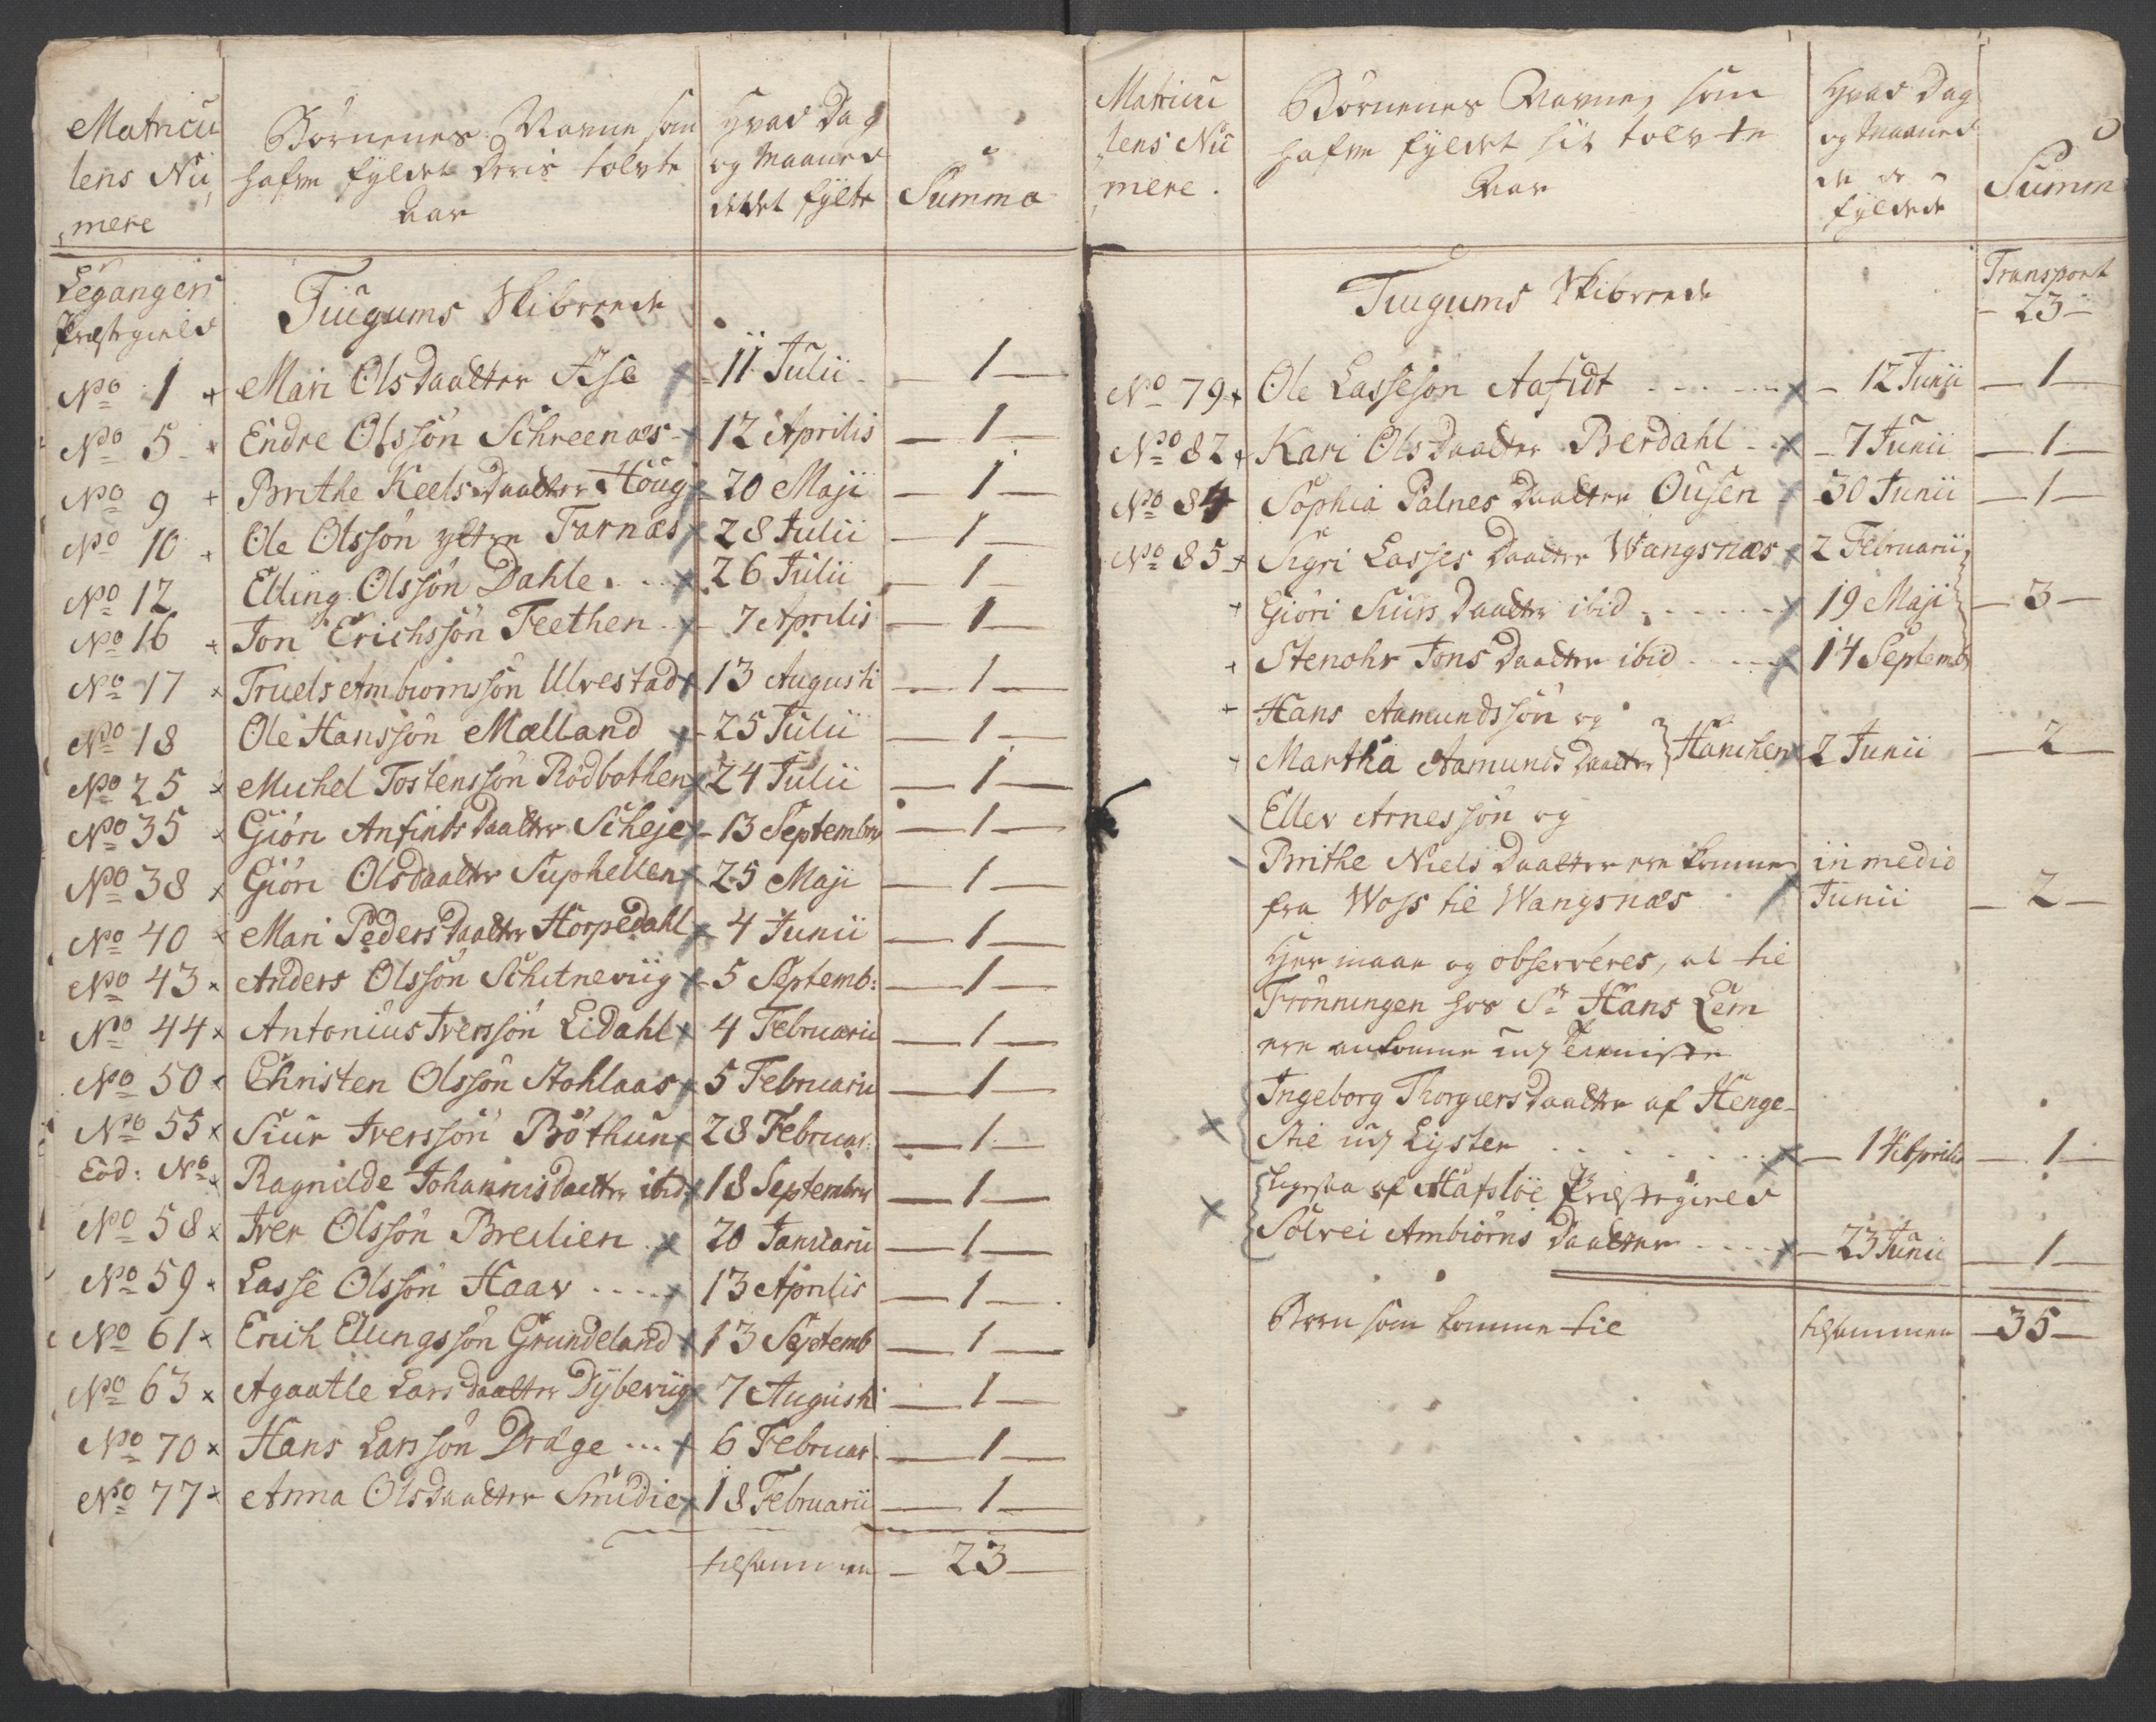 Matricu
lens Nu
mere
Børnenes Navne som
hafve fyldet deris tolvte
Aar
Hvad Dag
og Maaned
de det fylte
Summa
Leganger
Præstegield
Tiugums Skibreede
No 1 + Mari Olsdaatter Ese 11 Julii 1
No 5 Endre Olssøn Schreenæs 12 Aprilis 1
No 9 + Brithe Keelsdaatter Houg 20 Maji 1
No 10 Ole Olssøn yttre Farnæs 28 Julii 1
No 12 Elling Olssøn Dahle 26 Julii 1
No 16 + Jon Erichssøn Feethen 7 Aprilis 1
No 17 x Truels Ambiornssøn Ulvestad 13 Augusti 1
No 18 Ole Hanssøn Mælland 25 Julii 1
No 25 x Michel Tostenssøn Rødbothen 24 Julii 1
No 35 x Giøri Anfindsdaatter Scheje 13 Septembr 1
No 38 x Giøri Olsdaatter Suphellen 25 Maji 1
No 40 x Mari Pedersdaatter Horpedahl 4 Junii 1
No 43 x Anders Olssøn Schitneviig 5 Septemb: 1
No 44 x Antonius Iverssøn Eidahl 4 Februarii 1
No 50 x Christen Olssøn Stohlaas 5 Februarii 1
No 55 x Siur Iverssøn Bøthun 28 Februar: 1
Eod: No x Ragnilde Johannisdaatter ibid 18 Septembr 1
No 58 x Iver Olssøn Breilien 20 Januarii 1
No 59 x Lasse Olssøn Haav 13 Aprilis 1
No 61 x Erich Ellingssøn Grundeland 13 Septemb 1
No 63 x Agaatte Larsdaatter Dybeviig 7 Augusti 1
No 70 x Hans Larssøn Dræge 6 Februar 1
No 77 x Anna Olsdaatter Smidie 18 Februarii 1
tilsammen 23
Matricu
lens Nu
mere.
Børnenes Navne, som
hafve fyldet sit tolvte
Aar
Hvad Dag
og Maaned
de det
fyldede
Summ
Tiugums Skibreede
Transport
23
No 79 x Ole Lassesøn Aafidt 12 Junii 1
No 82 x Kari Olsdaatter Berdahl 7 Junii 1
No 84 Sophia Palnes daatter Ousen 30 Junii 1
No 85 x Sigri Lasses daatter Wangsnæs 2 Februarii
+ Giøri Siurs daatter ibid 19 Maji 3
+ Stenohr Jons daatter ibid 14 Septemb
+ Hans Aamundssøn og
+ Martha Aamunds daatter Hanchen 2 Junii 2
Ellev Arnessøn og
Brithe Niels daatter ere komne in medio
fra Woss til Wangsnæs Junii 2
Her maae og observeres, at til
Frønningen hos Sr Hans Lem
ere ankomne
Ingeborg Thorgiersdaatter af Henge-
stie udj Lyster 14 Aprilis 1
Ligesaa af Hafsloe Præstegield
Sølvei Ambiørns daatter 23 Junii 1
Børn som komme til tilsammen 35